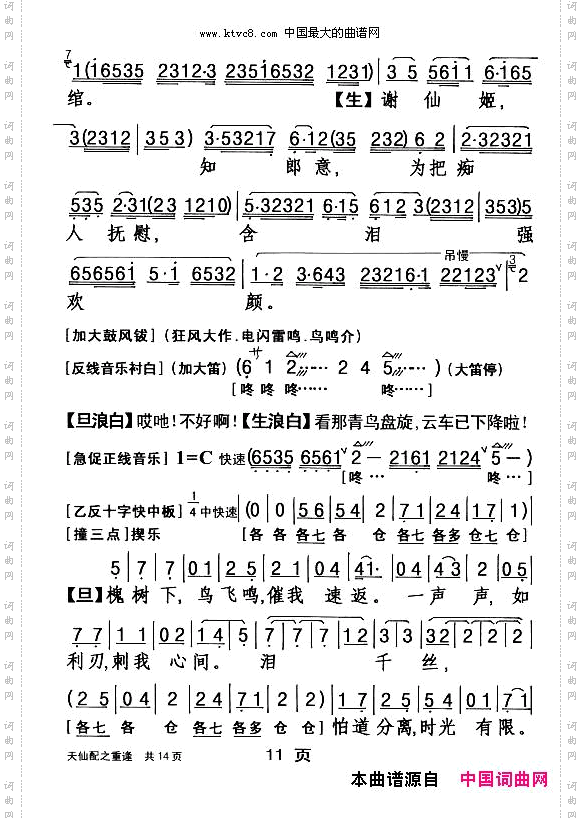 www.ktvc8.com 中国最大的曲谱网
1(16535 2312·3 23516532 1231)|3 5 5611 6·165
绾。 【生】谢仙姬,
3(2312|353)3·53217 6·12(35 232)6 2|2·32321
知 郎意, 为把痴
535 2·31(23 1210)|5·32321 6·15 612 3(2312 353)5
人抚慰, 含 泪 强
吊慢
656561 5·1 6532|1·2 3·643 23216·1 22123|2
欢 颜。
[加大鼓风钹](狂风大作.电闪雷鸣.鸟鸣介)
[反线音乐衬白](加大笛)(6 1 2…… 2 4 5……)(大笛停)
[咚 咚 咚…… 咚……]
【旦浪白】哎吔!不好啊!【生浪白】看那青鸟盘旋,云车已下降啦!
[急促正线音乐] 1=C 快速(6535 6561 2– 2161 2124 5–)
[咚… 咚…]
[乙反十字快中板] 1/4中快速(0|0|56|54|2|71|24|17|1)
[撞三点]揳乐 [各 各 各七 各 仓 各七 各多 仓七 仓]
5|7|7|01|25|21|04|41|0|04|43|2|05
【旦】槐树下,鸟飞鸣,催我 速返。一声 声,如
77|11|02|145|7|77|1|32|22|2
利刃,刺我 心间。泪 千 丝,
(25|04|2|24|71|2|2)|04|24|05|01
[各七 各 仓 各七 各多 仓 仓]怕道分离,时光 有限。
天仙配之重逢 共14页
11 页
本曲谱源自 中国词曲网
词曲网